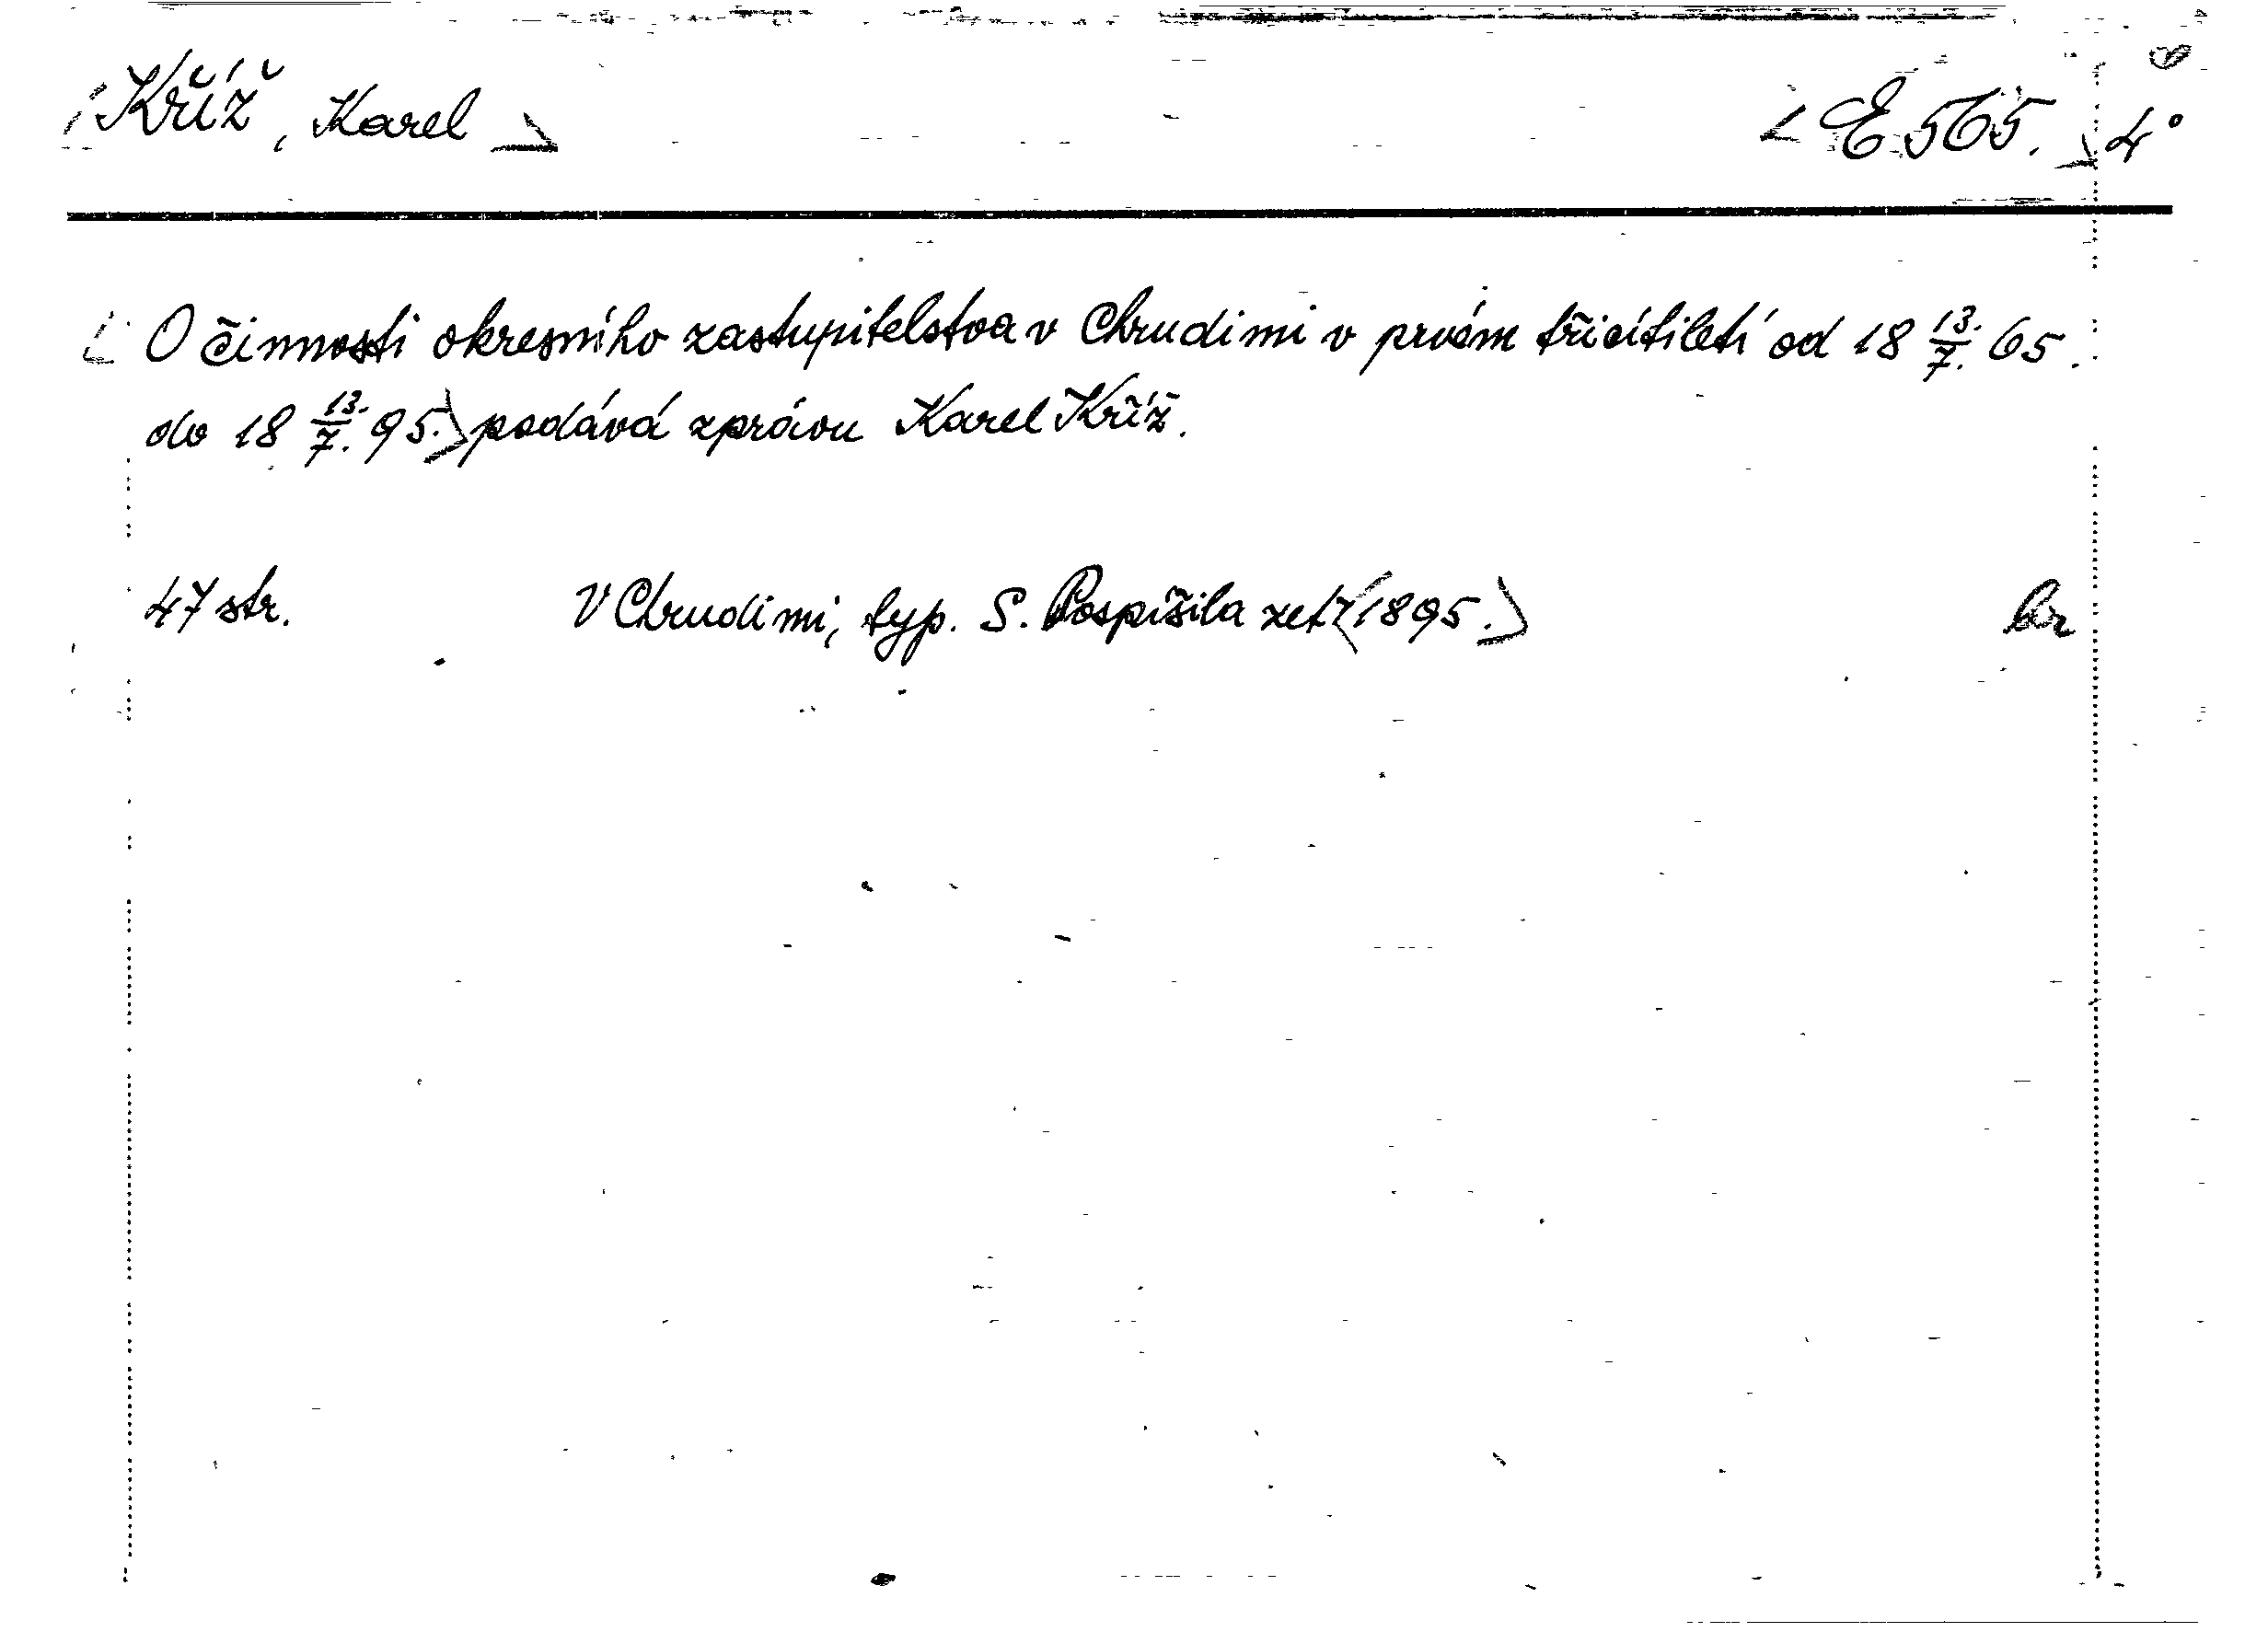 Kříž, Karel E 565. 4°
O činnosti okresního zastupitelstva v Chrudimi v prvém třicítiletí od 18 13./7. 65.
do 18 13./7. 95. podává zprávu Karel Kříž.
47 str. V Chrudimi, typ. S. Pospíšila zeť (1895.) br